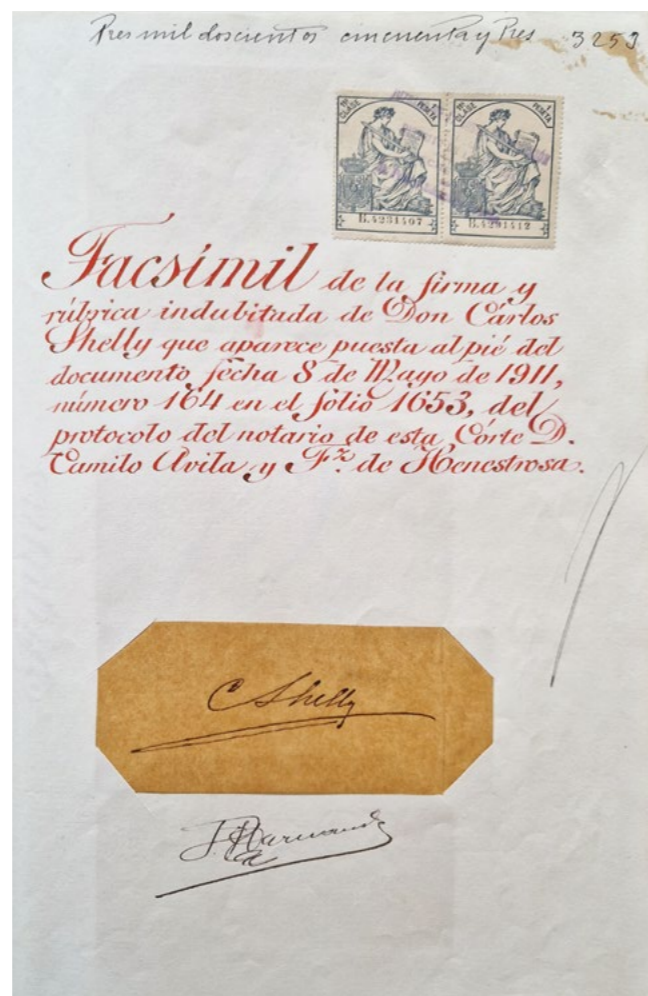 Tres mil doscientos cincuenta y Tres 3253
10ª CLASE 1 PESETA 10ª CLASE 1 PESETA
B.4291407 B.4291412
Facsímil de la firma y
rúbrica indubitada de Don Cárlos
Shelly que aparece puesta al pié del
documento, fecha 8 de Mayo de 1911,
número 164 en el folio 1653, del
protocolo del notario de esta Córte D.
Camilo Avila y Fz. de Henestrosa.
C Shelly